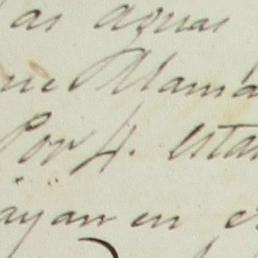 las aguas
que llama
Por 4. esta
ayan en e